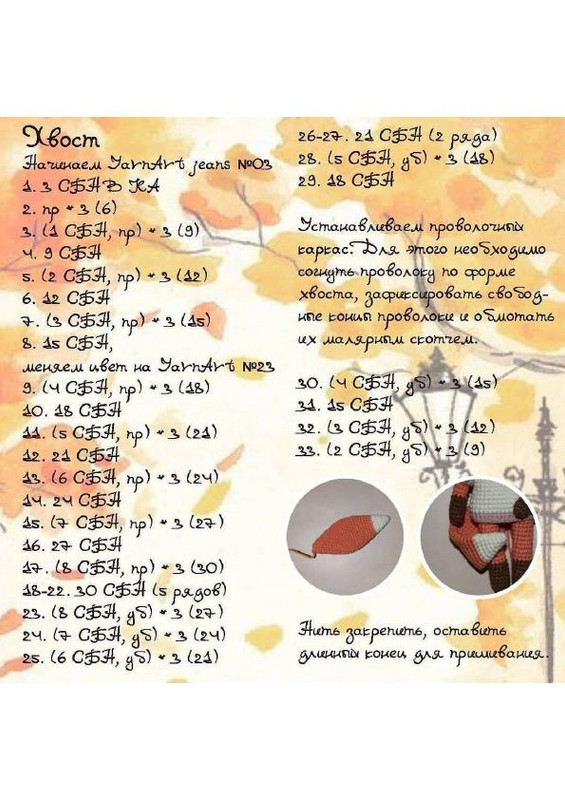 Хвост
Начинаем YarnArt jeans №03
1. 3 СБН в КА
2. пр * 3 (6)
3. (1 СБН, пр) * 3 (9)
4. 9 СБН
5. (2 СБН, пр) * 3 (12)
6. 12 СБН
7. (3 СБН, пр) * 3 (15)
8. 15 СБН,
меняем цвет на YarnArt №23
9. (4 СБН, пр) * 3 (18)
10. 18 СБН
11. (5 СБН, пр) * 3 (21)
12. 21 СБН
13. (6 СБН, пр) * 3 (24)
14. 24 СБН
15. (7 СБН, пр) * 3 (27)
16. 27 СБН
17. (8 СБН, пр) * 3 (30)
18-22. 30 СБН (5 рядов)
23. (8 СБН, уб) * 3 (27)
24. (7 СБН, уб) * 3 (24)
25. (6 СБН, уб) * 3 (21)
26-27. 21 СБН (2 ряда)
28. (5 СБН, уб) * 3 (18)
29. 18 СБН
Устанавливаем проволочный
каркас. Для этого необходимо
согнуть проволоку по форме
хвоста, зафиксировать свобод-
ные концы проволоки и обмотать
их малярным скотчем.
30. (4 СБН, уб) * 3 (15)
31. 15 СБН
32. (3 СБН, уб) * 3 (12)
33. (2 СБН, уб) * 3 (9)
Нить закрепить, оставить
длинный конец для пришивания.